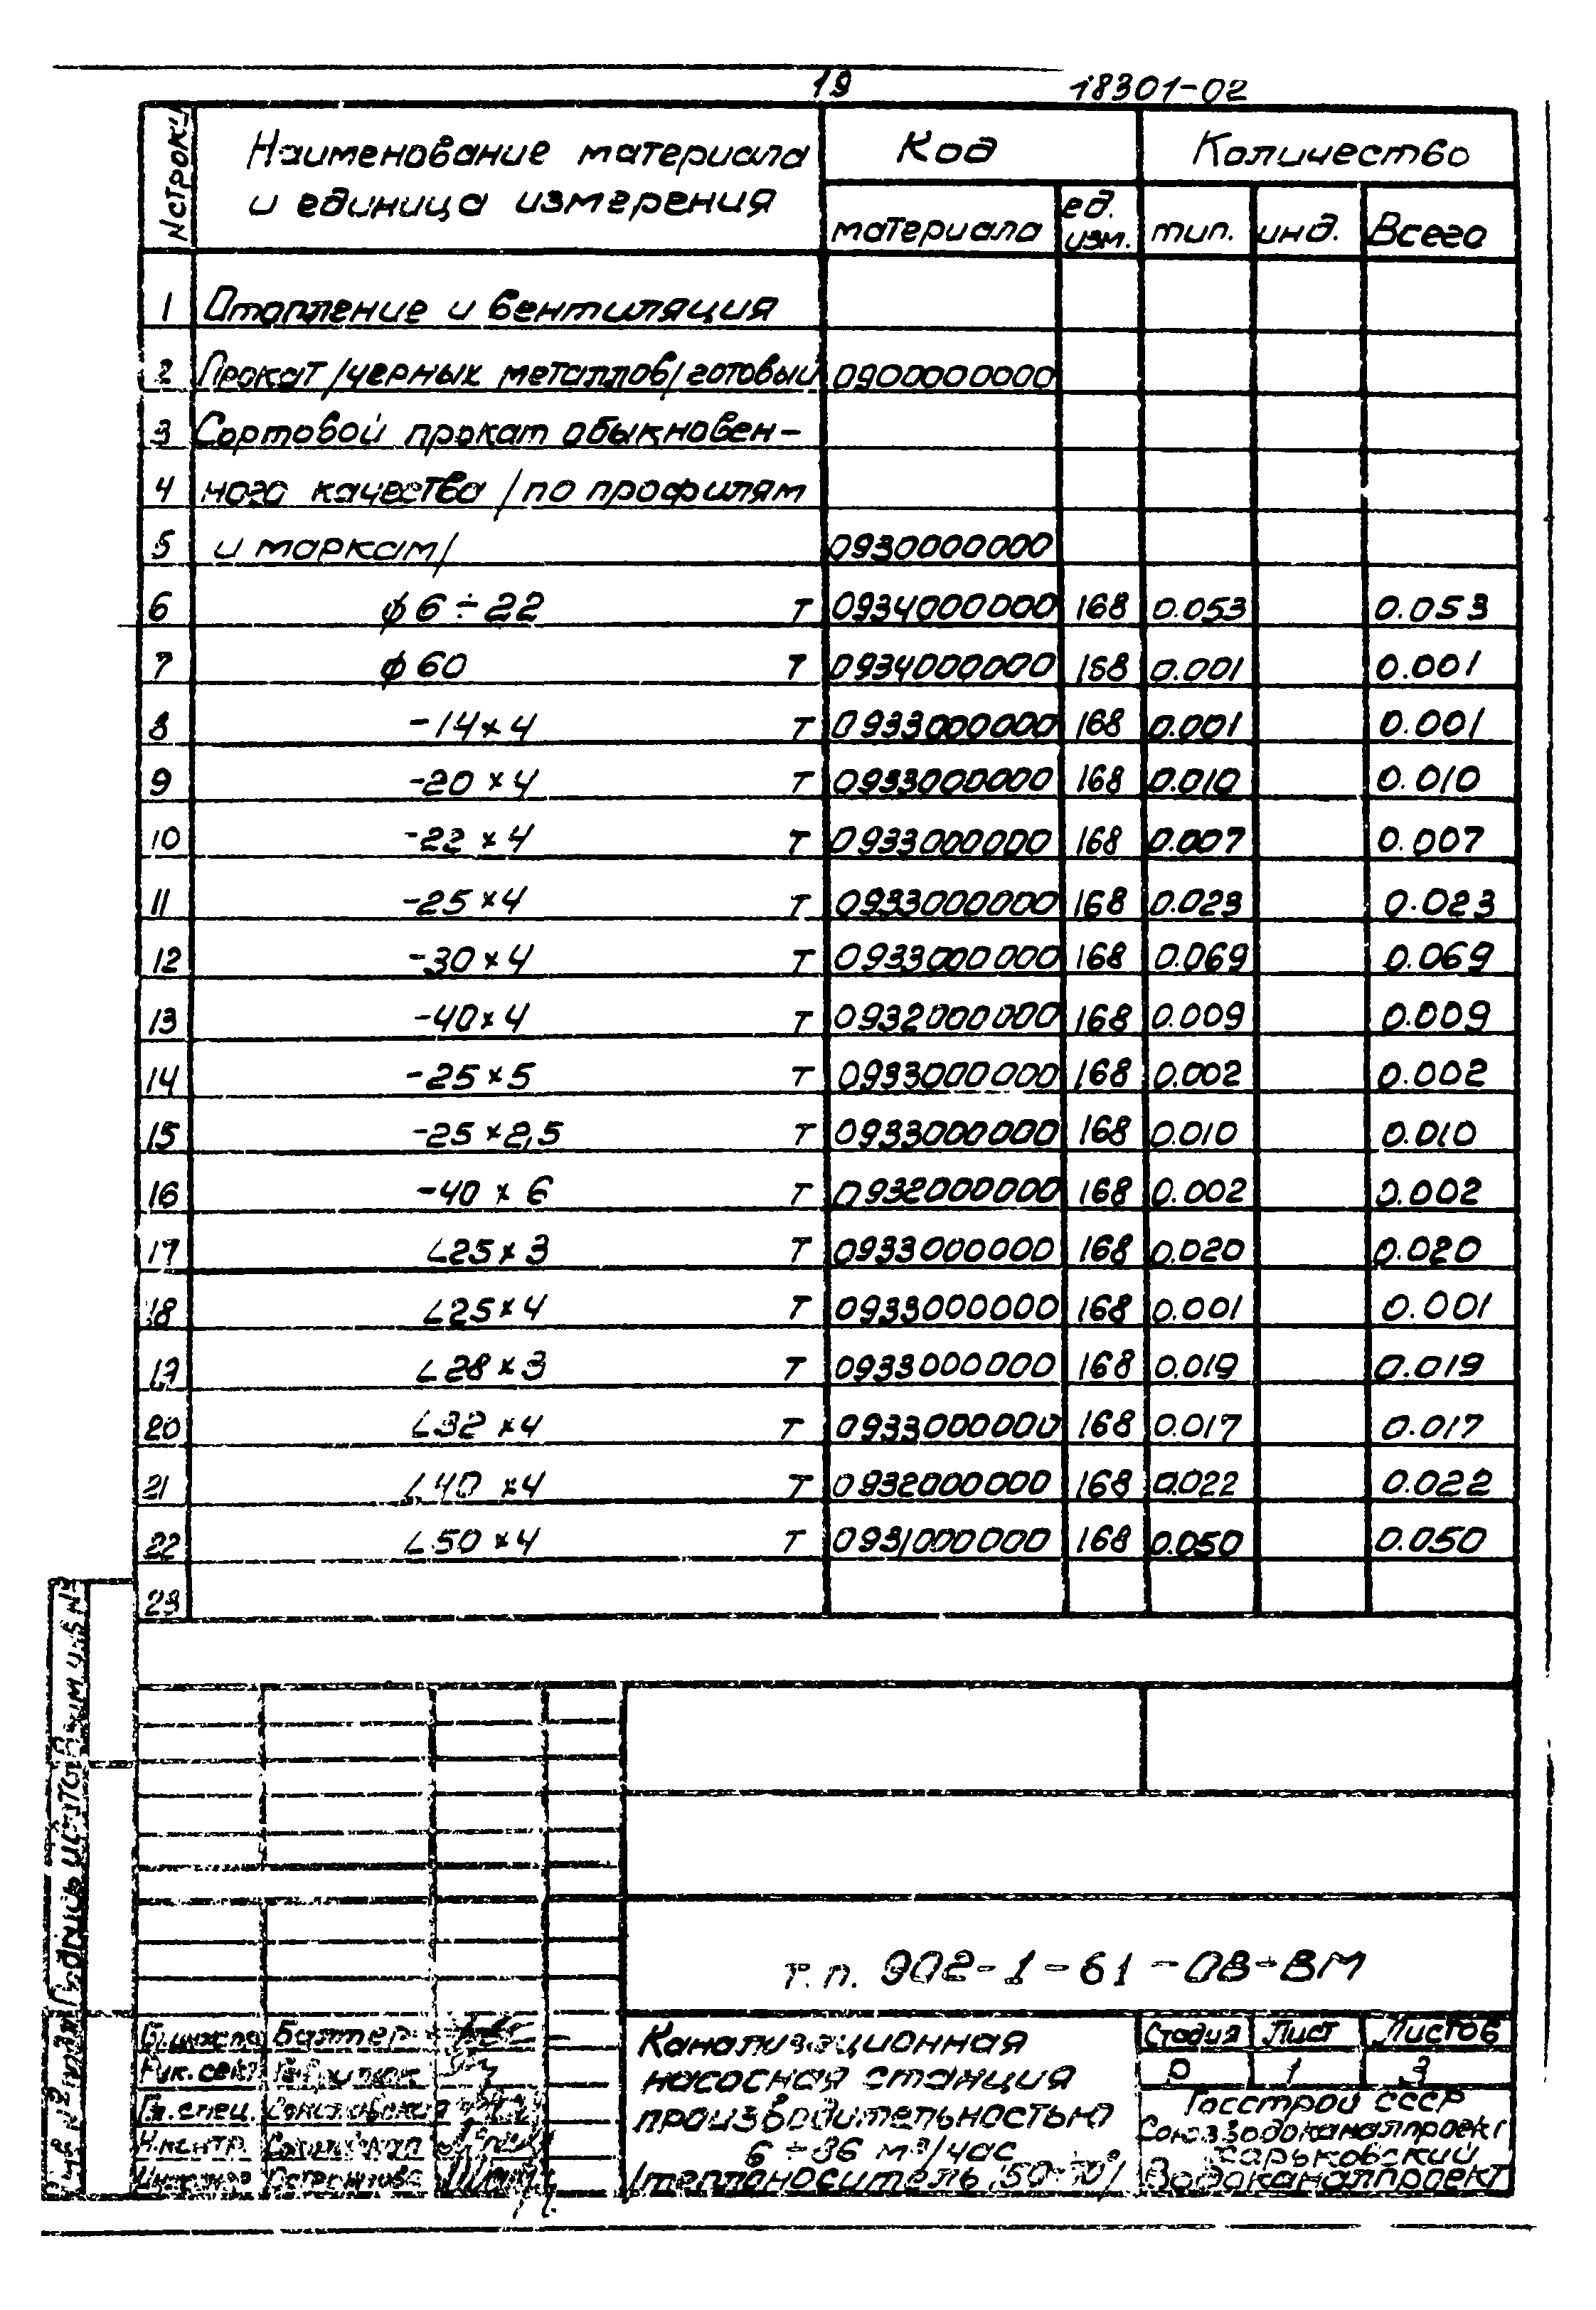 19 18301-02
N строки Наименование материала и единица измерения Код Количество
материала ед. изм. тип. инд. Всего
1 Отопление и вентиляция
2 Прокат /черных металлов/ готовый 0900000000
3 Сортовой прокат обыкновен-
4 ного качества /по профилям
5 и маркам/ 0930000000
6 ϕ 6 ÷ 22 Т 0934000000 168 0.053 0.053
7 ϕ 60 Т 0934000000 168 0.001 0.001
8 -14×4 Т 0933000000 168 0.001 0.001
9 -20×4 Т 0933000000 168 0.010 0.010
10 -22×4 Т 0933000000 168 0.007 0.007
11 -25×4 Т 0933000000 168 0.023 0.023
12 -30×4 Т 0933000000 168 0.069 0.069
13 -40×4 Т 0932000000 168 0.009 0.009
14 -25×5 Т 0933000000 168 0.002 0.002
15 -25×2,5 Т 0933000000 168 0.010 0.010
16 -40×6 Т 0932000000 168 0.002 0.002
17 ∠25×3 Т 0933000000 168 0.020 0.020
18 ∠25×4 Т 0933000000 168 0.001 0.001
19 ∠28×3 Т 0933000000 168 0.019 0.019
20 ∠32×4 Т 0933000000 168 0.017 0.017
21 ∠40×4 Т 0932000000 168 0.022 0.022
22 ∠50×4 Т 0931000000 168 0.050 0.050
23
т.п. 902-1-61-ОВ-ВМ
Канализационная
насосная станция
производительностью
6 ÷ 86 м³/час
/теплоноситель 150-70°/
Стадия Лист Листов
Р 1 3
Госстрой СССР
Союзводоканалпроект
Харьковский
Водоканалпроект
Балтер
Рук. сект.
Гл. спец.
Н.контр.
Инженер
Подпись и дата